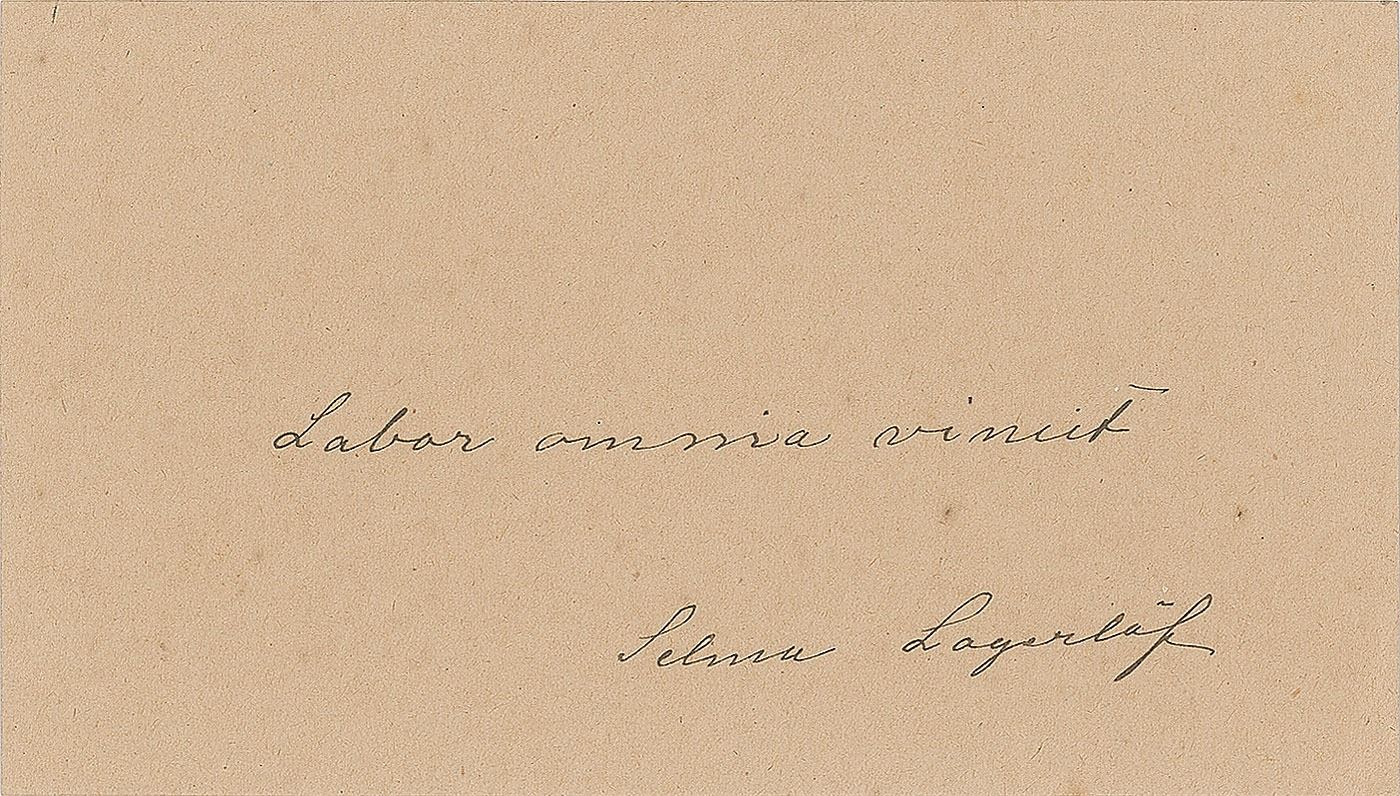 Labor omnia vincit
Selma Lagerlöf